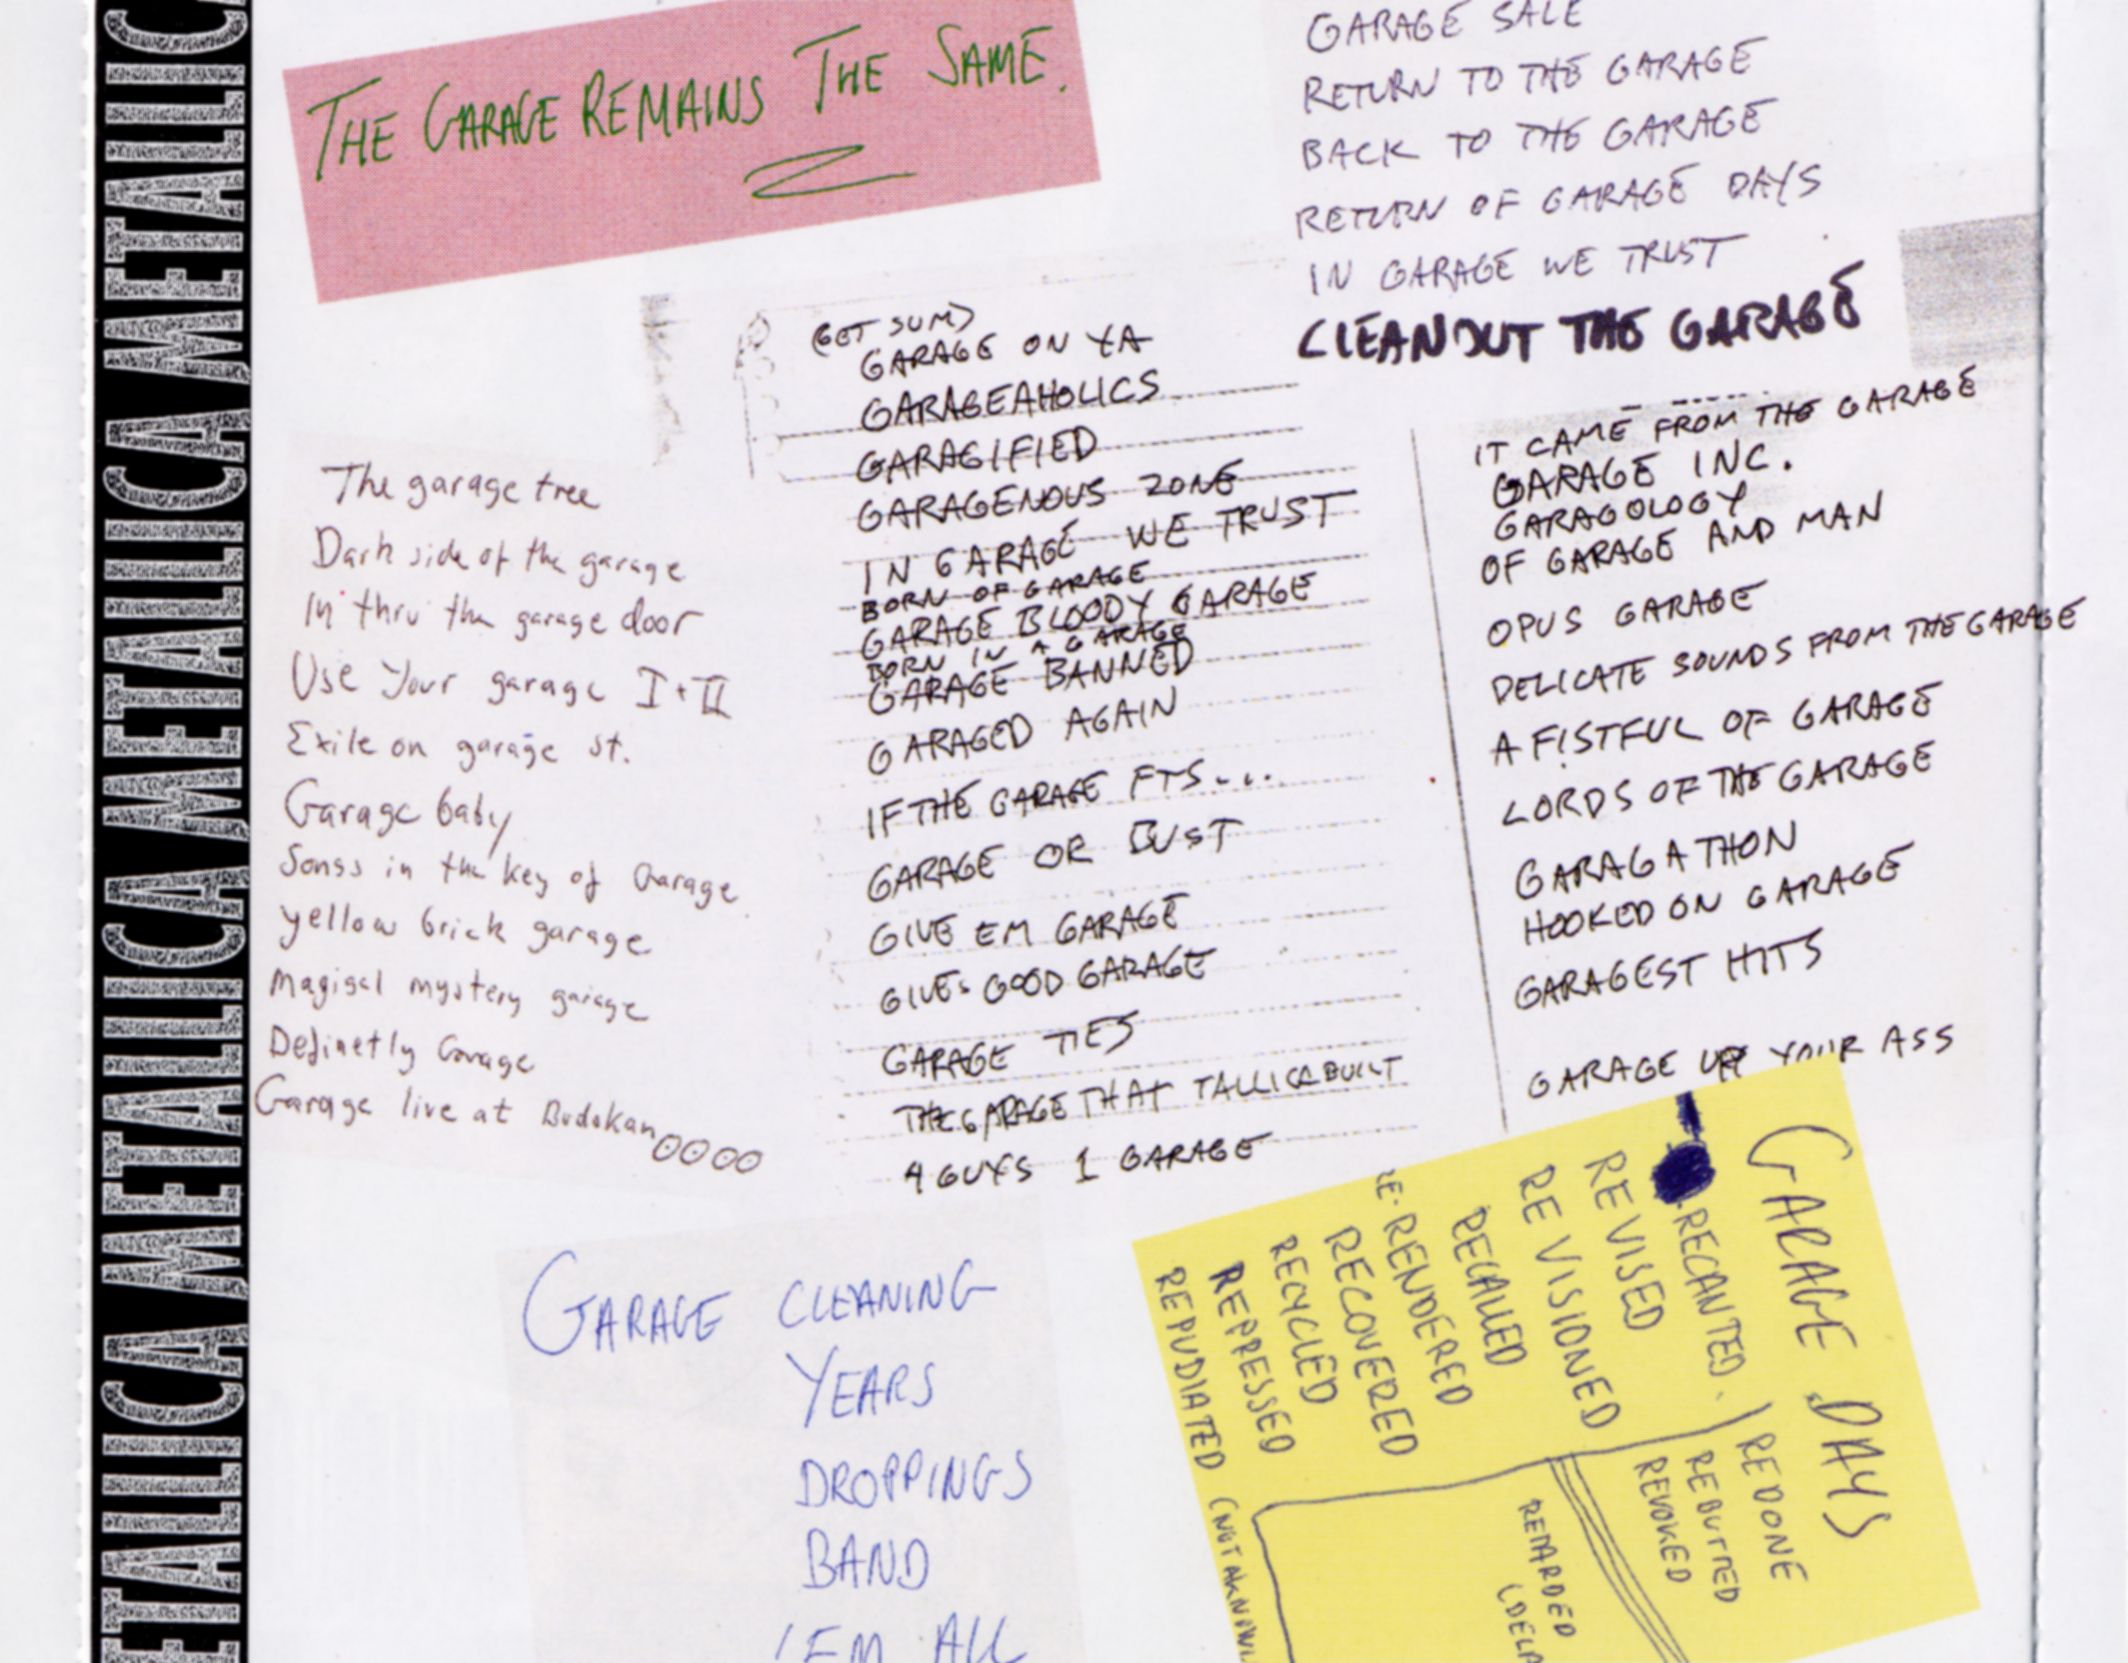 METALLICA METALLICA METALLICA METALLICA
THE GARAGE REMAINS THE SAME.
GARAGE SALE
RETURN TO THE GARAGE
BACK TO THE GARAGE
RETURN OF GARAGE DAYS
IN GARAGE WE TRUST
CLEANOUT THE GARAGE
The garage tree
Dark side of the garage
In thru the garage door
Use Your garage I + II
Exile on garage st.
Garage baby
Songs in the key of Garage
yellow brick garage
Magical mystery garage
Definetly Garage
Garage live at Budokan
(GET SUM)
GARAGE ON YA
GARAGEAHOLICS
GARAGIFIED
GARAGENOUS ZONE
IN GARAGE WE TRUST
BORN OF GARAGE
GARAGE BLOODY GARAGE
BORN IN A GARAGE
GARAGE BANNED
GARAGED AGAIN
IF THE GARAGE FTS....
GARAGE OR BUST
GIVE EM GARAGE
GIVES GOOD GARAGE
GARAGE TIES
THE GARAGE THAT TALLICA BUILT
4 GUYS 1 GARAGE
IT CAME FROM THE GARAGE
GARAGE INC.
GARAGOLOGY
OF GARAGE AND MAN
OPUS GARAGE
DELICATE SOUNDS FROM THE GARAGE
A FISTFUL OF GARAGE
LORDS OF THE GARAGE
GARAGATHON
HOOKED ON GARAGE
GARAGEST HITS
GARAGE UP YOUR ASS
GARAGE CLEANING
YEARS
DROPPINGS
BAND
'EM ALL
GARAGE DAYS
RECANTED
REDONE
REVISED
REBUTTED
REVISIONED
REVOKED
RECALLED
RE-RENDERED
RECOVERED
RECYCLED
REPRESSED
REPUDIATED
RETARDED